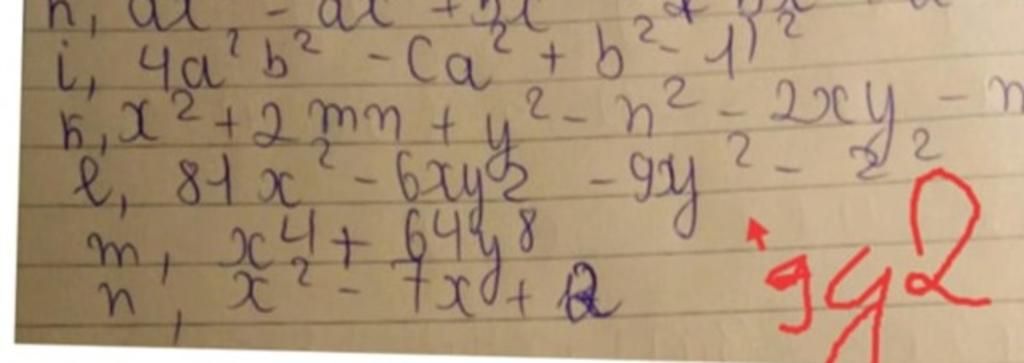 i, 4a²b² - (a² + b² - 1)²
k, x² + 2mn + y² - n² - 2xy - m
l, 81x² - 6xyz - 9y² - z²
m, x⁴ + 64y⁸
n, x² - 7x +
9y2